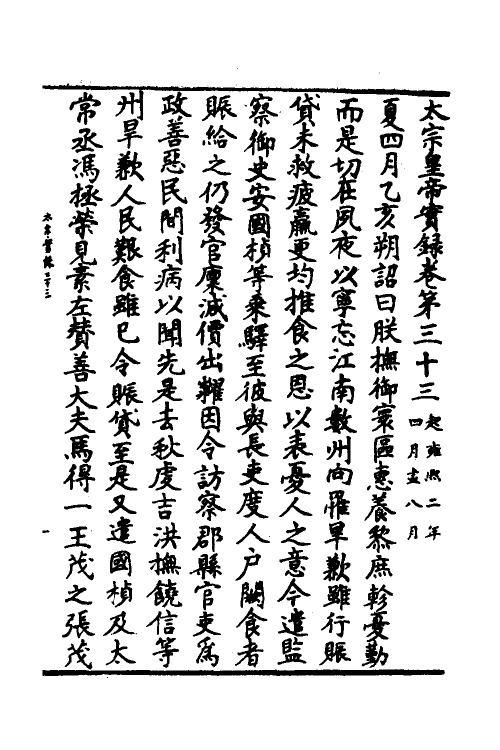 太宗皇帝實録卷第三十三 起雍熙二年四月盡八月
夏四月乙亥朔詔曰朕撫御寰區惠養黎庶軫憂勤
而是切在夙夜以寧忘江南數州向罹旱歉雖行賑
貸未救疲羸更均推食之恩以表憂人之意今遣監
察御史安國楨等乘驛至彼與長吏度人户闕食者
賑給之仍發官廩減價出糶因令訪察郡縣官吏爲
政善惡民間利病以聞先是去秋虔吉洪撫饒信等
州旱歉人民艱食雖已令賑貸至是又遣國楨及太
常丞馮拯榮見素左賛善大夫馬得一王茂之張茂
太宗實録 三十三
一